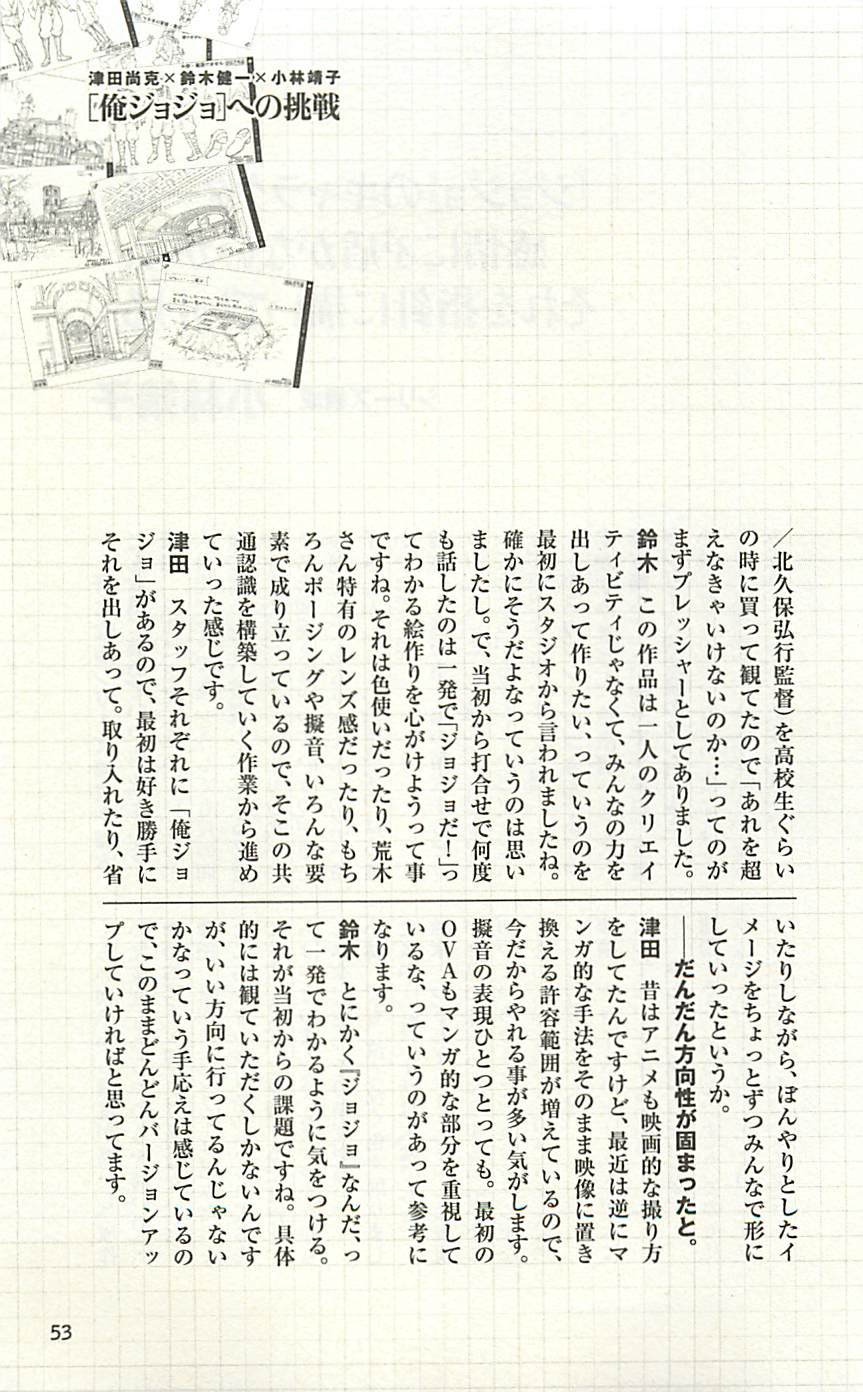 津田尚克×鈴木健一×小林靖子
［俺ジョジョ］への挑戦
／北久保弘行監督）を高校生ぐらい
の時に買って観てたので「あれを超
えなきゃいけないのか…」ってのが
まずプレッシャーとしてありました。
鈴木　この作品は一人のクリエイ
ティビティじゃなくて、みんなの力を
出しあって作りたい、っていうのを
最初にスタジオから言われましたね。
確かにそうだよなっていうのは思い
ましたし。で、当初から打合せで何度
も話したのは一発で「ジョジョだ！」っ
てわかる絵作りを心がけようって事
ですね。それは色使いだったり、荒木
さん特有のレンズ感だったり、もち
ろんポージングや擬音、いろんな要
素で成り立っているので、そこの共
通認識を構築していく作業から進め
ていった感じです。
津田　スタッフそれぞれに「俺ジョ
ジョ」があるので、最初は好き勝手に
それを出しあって。取り入れたり、省
いたりしながら、ぼんやりとしたイ
メージをちょっとずつみんなで形に
していったというか。
――だんだん方向性が固まったと。
津田　昔はアニメも映画的な撮り方
をしてたんですけど、最近は逆にマ
ンガ的な手法をそのまま映像に置き
換える許容範囲が増えているので、
今だからやれる事が多い気がします。
擬音の表現ひとつとっても。最初の
OVAもマンガ的な部分を重視して
いるな、っていうのがあって参考に
なります。
鈴木　とにかく『ジョジョ』なんだ、っ
て一発でわかるように気をつける。
それが当初からの課題ですね。具体
的には観ていただくしかないんです
が、いい方向に行ってるんじゃない
かなっていう手応えは感じているの
で、このままどんどんバージョンアッ
プしていければと思ってます。
53